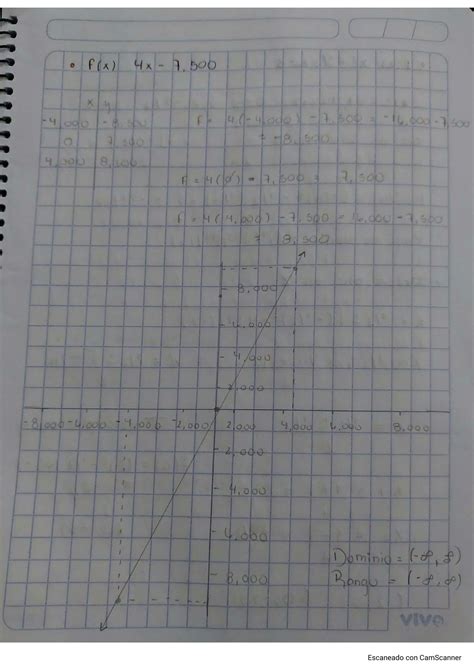 • F(x) 4x - 7,500
x y
-4,000 -8,500 F= 4(-4,000) - 7,500 = -16,000 - 7,500
= -8,500
0 7,500
4,000 8,500
F = 4(0) - 7,500 = 7,500
F = 4(4,000) - 7,500 = 16,000 - 7,500
= 8,500
8,000
6,000
4,000
2,000
-8,000 -6,000 -4,000 -2,000 2,000 4,000 6,000 8,000
-2,000
-4,000
-6,000
-8,000
Dominio = (-∞, ∞)
Rango = (-∞, ∞)
vivo
Escaneado con CamScanner